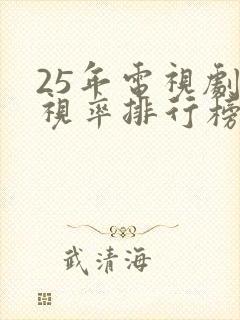 25年電視劇
視率排行榜
武清海